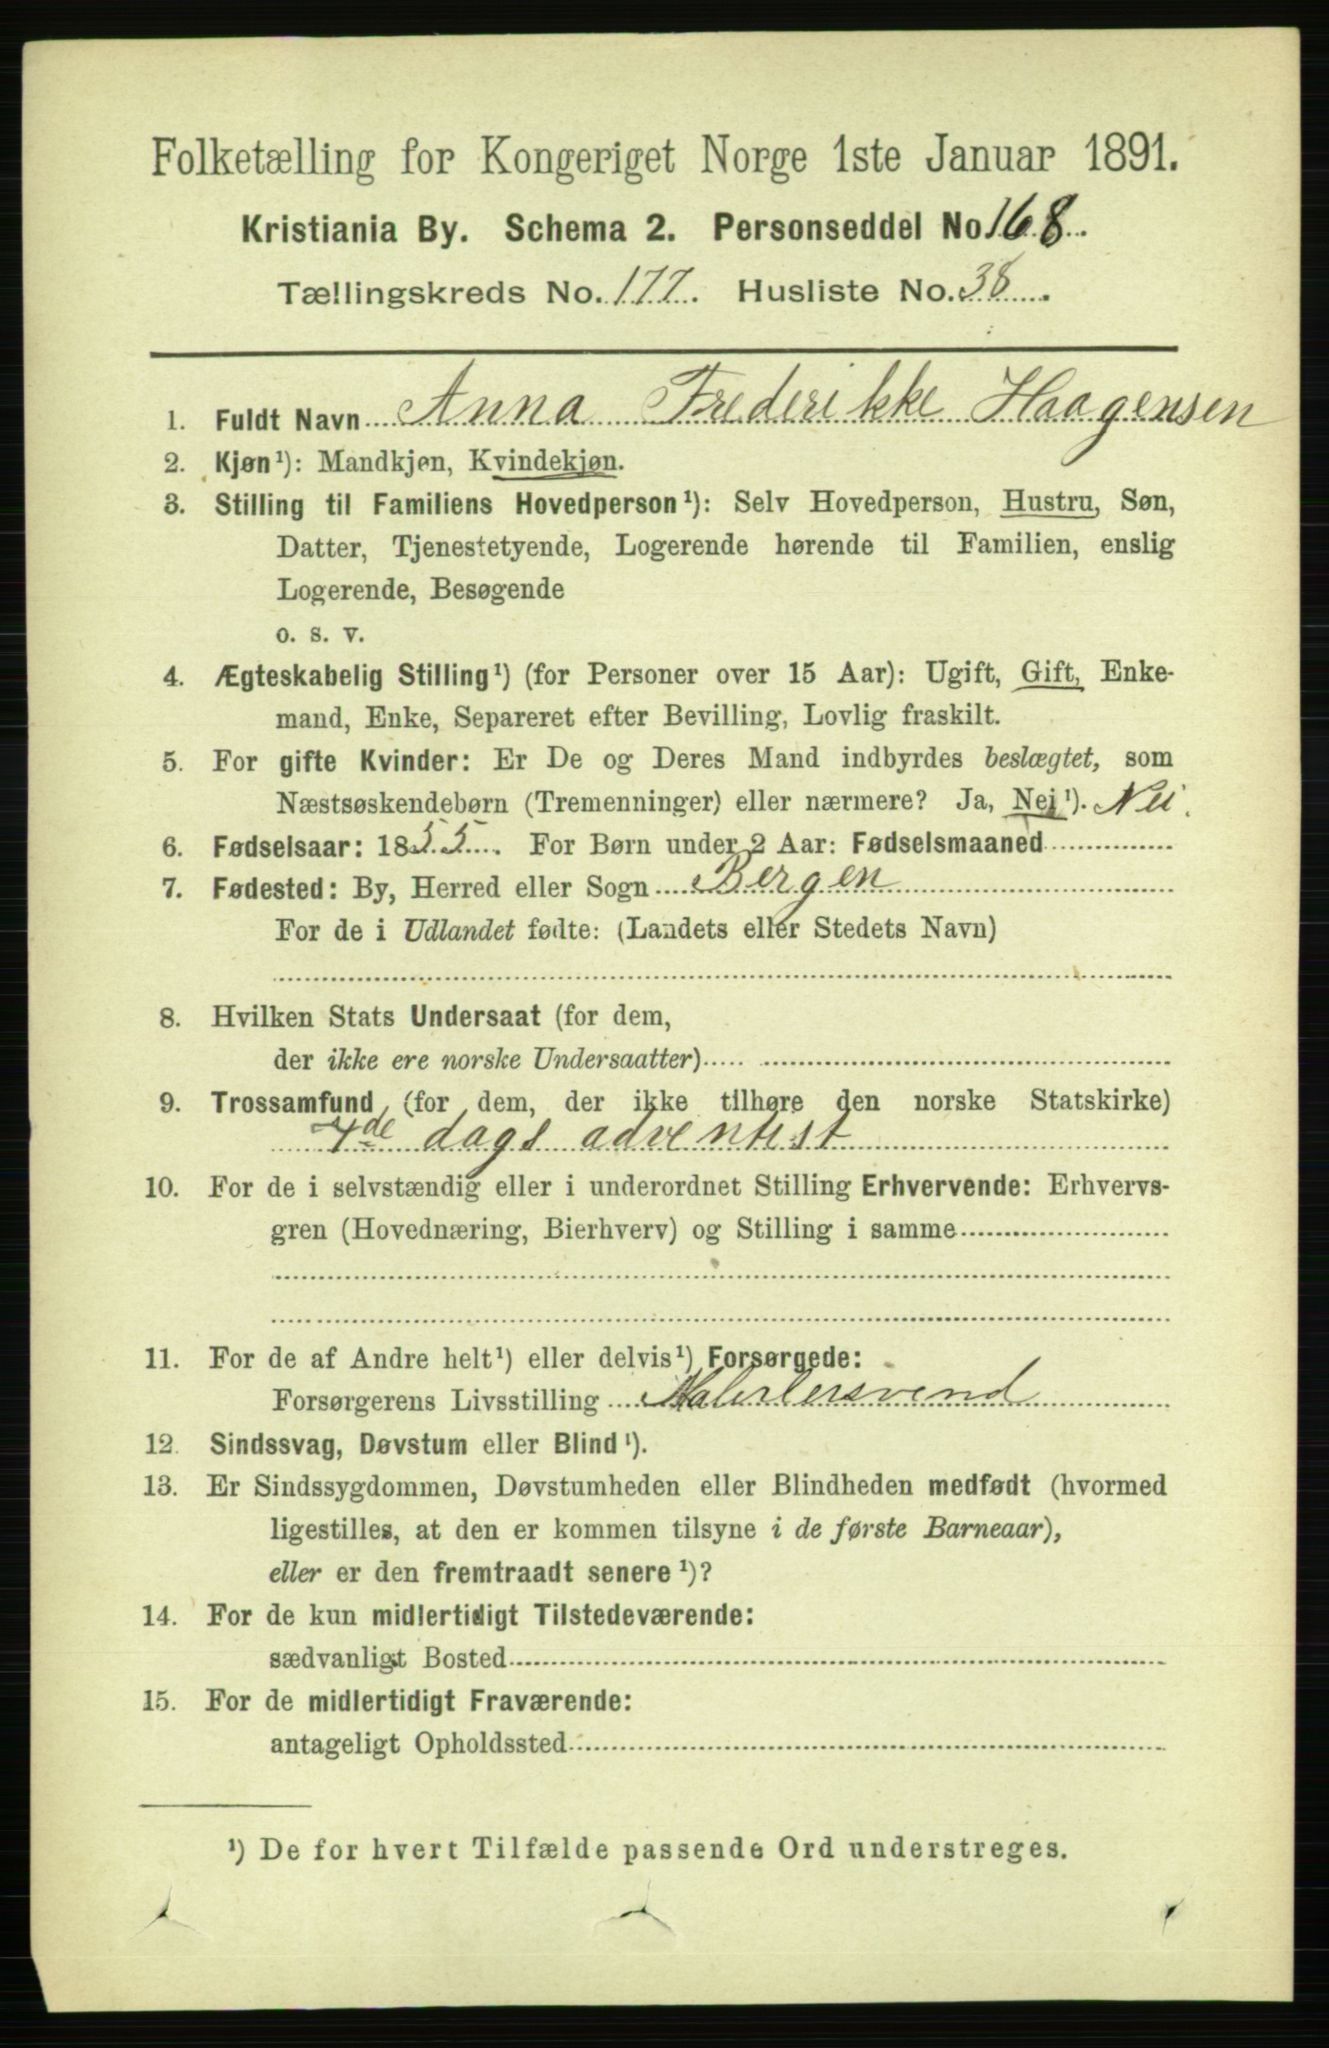 Folketælling for Kongeriget Norge 1ste Januar 1891.
Kristiania By. Schema 2. Personseddel No 168.
Tællingskreds No. 177. Husliste No. 38.
1. Fuldt Navn Anna Frederikke Haagensen
2. Kjøn¹): Mandkjøn, Kvindekjøn.
3. Stilling til Familiens Hovedperson¹): Selv Hovedperson, Hustru, Søn,
Datter, Tjenestetyende, Logerende hørende til Familien, enslig
Logerende, Besøgende
o. s. v.
4. Ægteskabelig Stilling¹) (for Personer over 15 Aar): Ugift, Gift, Enke-
mand, Enke, Separeret efter Bevilling, Lovlig fraskilt.
5. For gifte Kvinder: Er De og Deres Mand indbyrdes beslægtet, som
Næstsøskendebørn (Tremenninger) eller nærmere? Ja, Nej¹). Nei.
6. Fødselsaar: 1855. For Børn under 2 Aar: Fødselsmaaned
7. Fødested: By, Herred eller Sogn Bergen
For de i Udlandet fødte: (Landets eller Stedets Navn)
8. Hvilken Stats Undersaat (for dem,
der ikke ere norske Undersaatter)
9. Trossamfund (for dem, der ikke tilhøre den norske Statskirke)
7de dags adventist
10. For de i selvstændig eller i underordnet Stilling Erhvervende: Erhvervs-
gren (Hovednæring, Bierhverv) og Stilling i samme
11. For de af Andre helt¹) eller delvis¹) Forsørgede:
Forsørgerens Livsstilling
12. Sindssvag, Døvstum eller Blind¹).
13. Er Sindssygdommen, Døvstumheden eller Blindheden medfødt (hvormed
ligestilles, at den er kommen tilsyne i de første Barneaar),
eller er den fremtraadt senere¹)?
14. For de kun midlertidigt Tilstedeværende:
sædvanligt Bosted
15. For de midlertidigt Fraværende:
antageligt Opholdssted
¹) De for hvert Tilfælde passende Ord understreges.